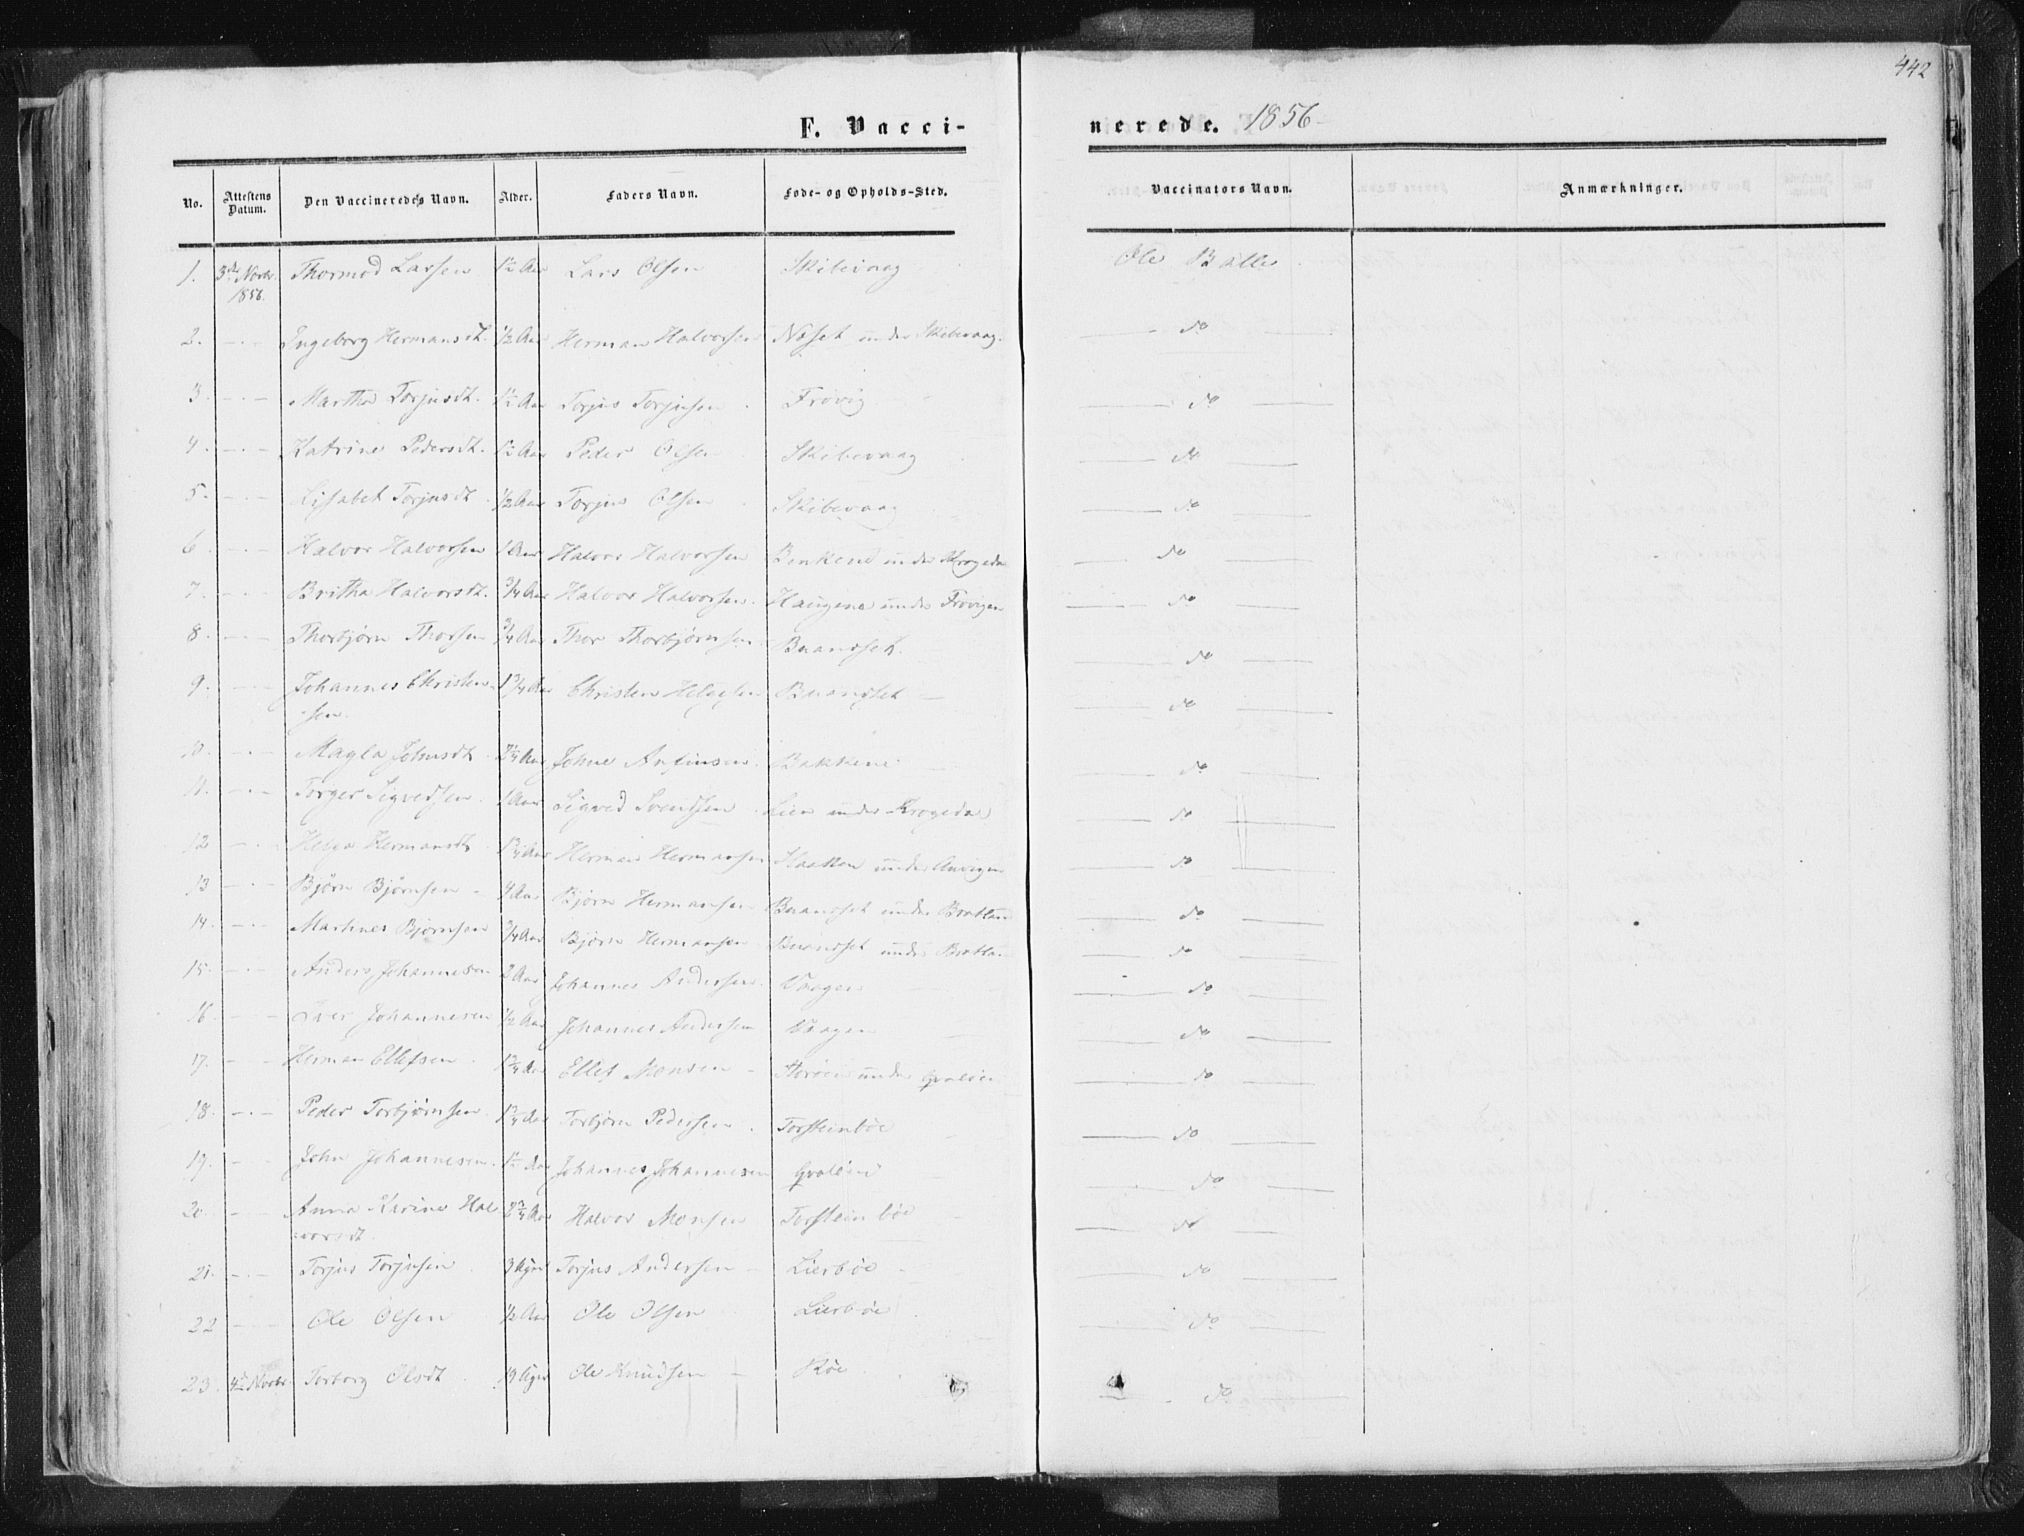 442
F. Vacci-
nerede. 1856
No. Attestens Datum. Den Vaccineredes Navn. Alder. Faders Navn. Føde- og Opholds-Sted. Vaccinators Navn. Anmærkninger.
1. 3die Novbr. 1856. Thormod Larsen 1½ Aar Lars Olsen Skibevaag Ole Bålle
2. — Ingeborg Hermansdt. ½ Aar Herman Halvorsen Næset under Skibevaag. — do —
3. — Martha Torjusdt. 1½ Aar Torjus Torjusen Frøvig — do —
4. — Katrine Pedersdt. 1½ Aar Peder Olsen Skibevaag — do —
5. — Lisabet Torjusdt. ½ Aar Torjus Olsen Skibevaag — do —
6. — Halvor Halvorsen 1 Aar Halvor Halvorsen under — do —
7. — Britha Halvorsdt. ¾ Aar Halvor Halvorsen Haugene under Frøvigen — do —
8. — Thorbjørn Thorsen ¾ Aar Thor Thorbjørnsen Buandset — do —
9. — Johannes Christen-
sen. 1¾ Aar Christen Helgesen Buandset — do —
10. — Magla Johnsdt Aar Johne Anfinsen Bakkene — do —
11. — Torger Sigvedsen 1 Aar Sigved Svendsen Lien under Krogedal — do —
12 — Helga Hermansdt Aar Herman Hermansen under — do —
13 — Bjørn Bjørnsen 4 Aar Bjørn Hermansen Buandset under — do —
14. — Martines Bjørnsen ¾ Aar Bjørn Hermansen Buandset under — do —
15. — Anders Johannesen 2 Aar Johannes Andersen Vaagen — do —
16. — Iver Johannesen ½ Aar Johannes Andersen Vaagen — do —
17. — Herman Ellefsen Aar Ellef Monsen under — do —
18. — Peder Torbjørnsen Aar Torbjørn Pedersen Torsteinbøe — do —
19. — John Johannesen 1½ Aar Johannes Johannesen — do —
20. — Anna Karine Hal-
vorsdt. 2¾ Aar Halvor Monsen Torsteinbøe — do —
21. — Torjus Torjusen Torjus Andersen Lierbøe — do —
22 — Ole Olsen ½ Aar Ole Olsen Lierbøe — do —
23. 4de Novbr. Torborg Olsdt Ole Knudsen Røe — do —